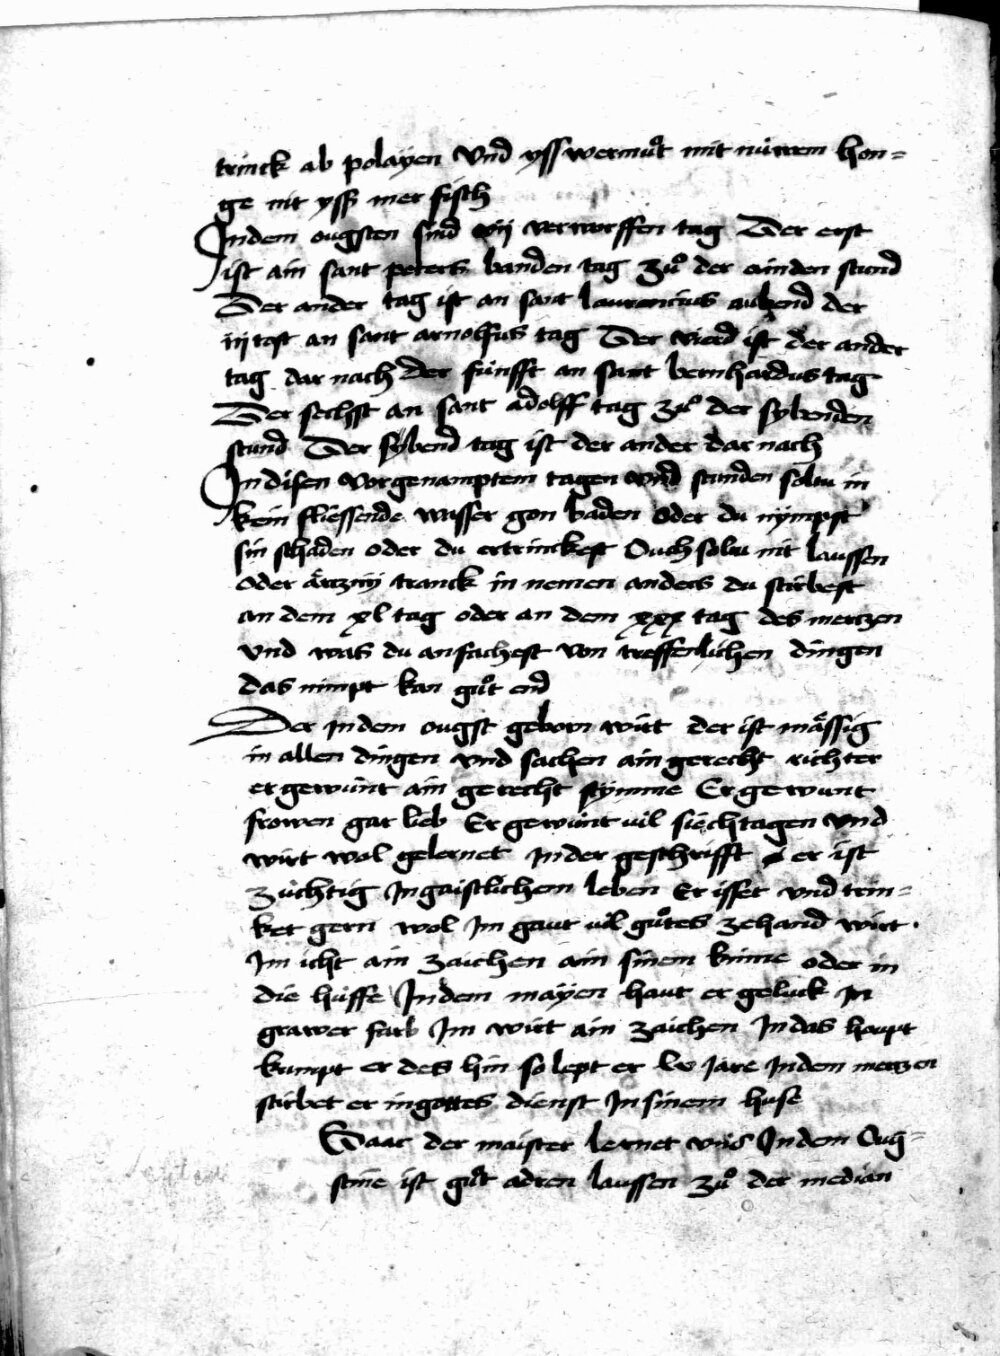 trinck ab polayen Vnd yss wermůt mit nüwem hon=
ge nit yss mer fisch
Indem ougsten sind vij verworffen tag Der erst
ist ain sant peters banden tag zů der ainden stund
Der ander tag ist an sant laurencius aubend der
iij ist an sant arnolfus tag Der vierd ist der ander
tag dar nach Der fünfft an sant bernhardus tag
Der sechst an sant adolff tag zů der sybenden
stund Der sybend tag ist der ander dar nach
In disen vorgenamptem tagen vnd stunden soltu in
kein fliessende wasser gon baden oder du nympst
sin schaden oder du ertrinckest Ouch soltu nit laussen
oder ärczny tranck in nemen anders du stirbest
an dem xl tag oder an dem xxx tag des merczen
vnd was du anfachest von treffenlichen dingen
das nimpt kan gůt end
Der Jn dem ougst geborn wirt der ist mässig
in allen dingen vnd sachen ain gerecht richter
er gewint ain gerecht stymme Er gewunt
frowen gar lieb Er gewint vil siechtagen vnd
wirt wol gelernet Jn der geschrifft er ist
züchtig Jn gaistlichem leben Er isset vnd trin=
ket gern wol Jm gaut vil gůtes zehand wirt
Jm icht ain zaichen ain sinem kinne oder in
die hüffe Jn dem mayen haut er gelück Jn
grawer farb Jm wirt ain zaichen Jn das hopt
kumpt er des hin so lept er lv Jare Jn dem merczen
stirbet er in gottes dienst Jn sinem huse
der maister lernet vns Jn dem Oug=
stine ist gůt adren laussen zů der median